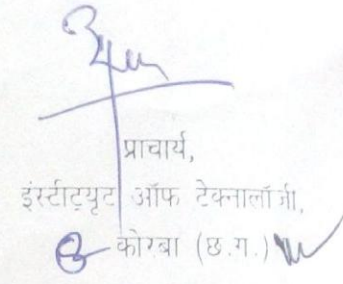 प्राचार्य,
इंस्टीट्रयूट ऑफ टेक्नालॉजी,
कोरबा (छ.ग.)